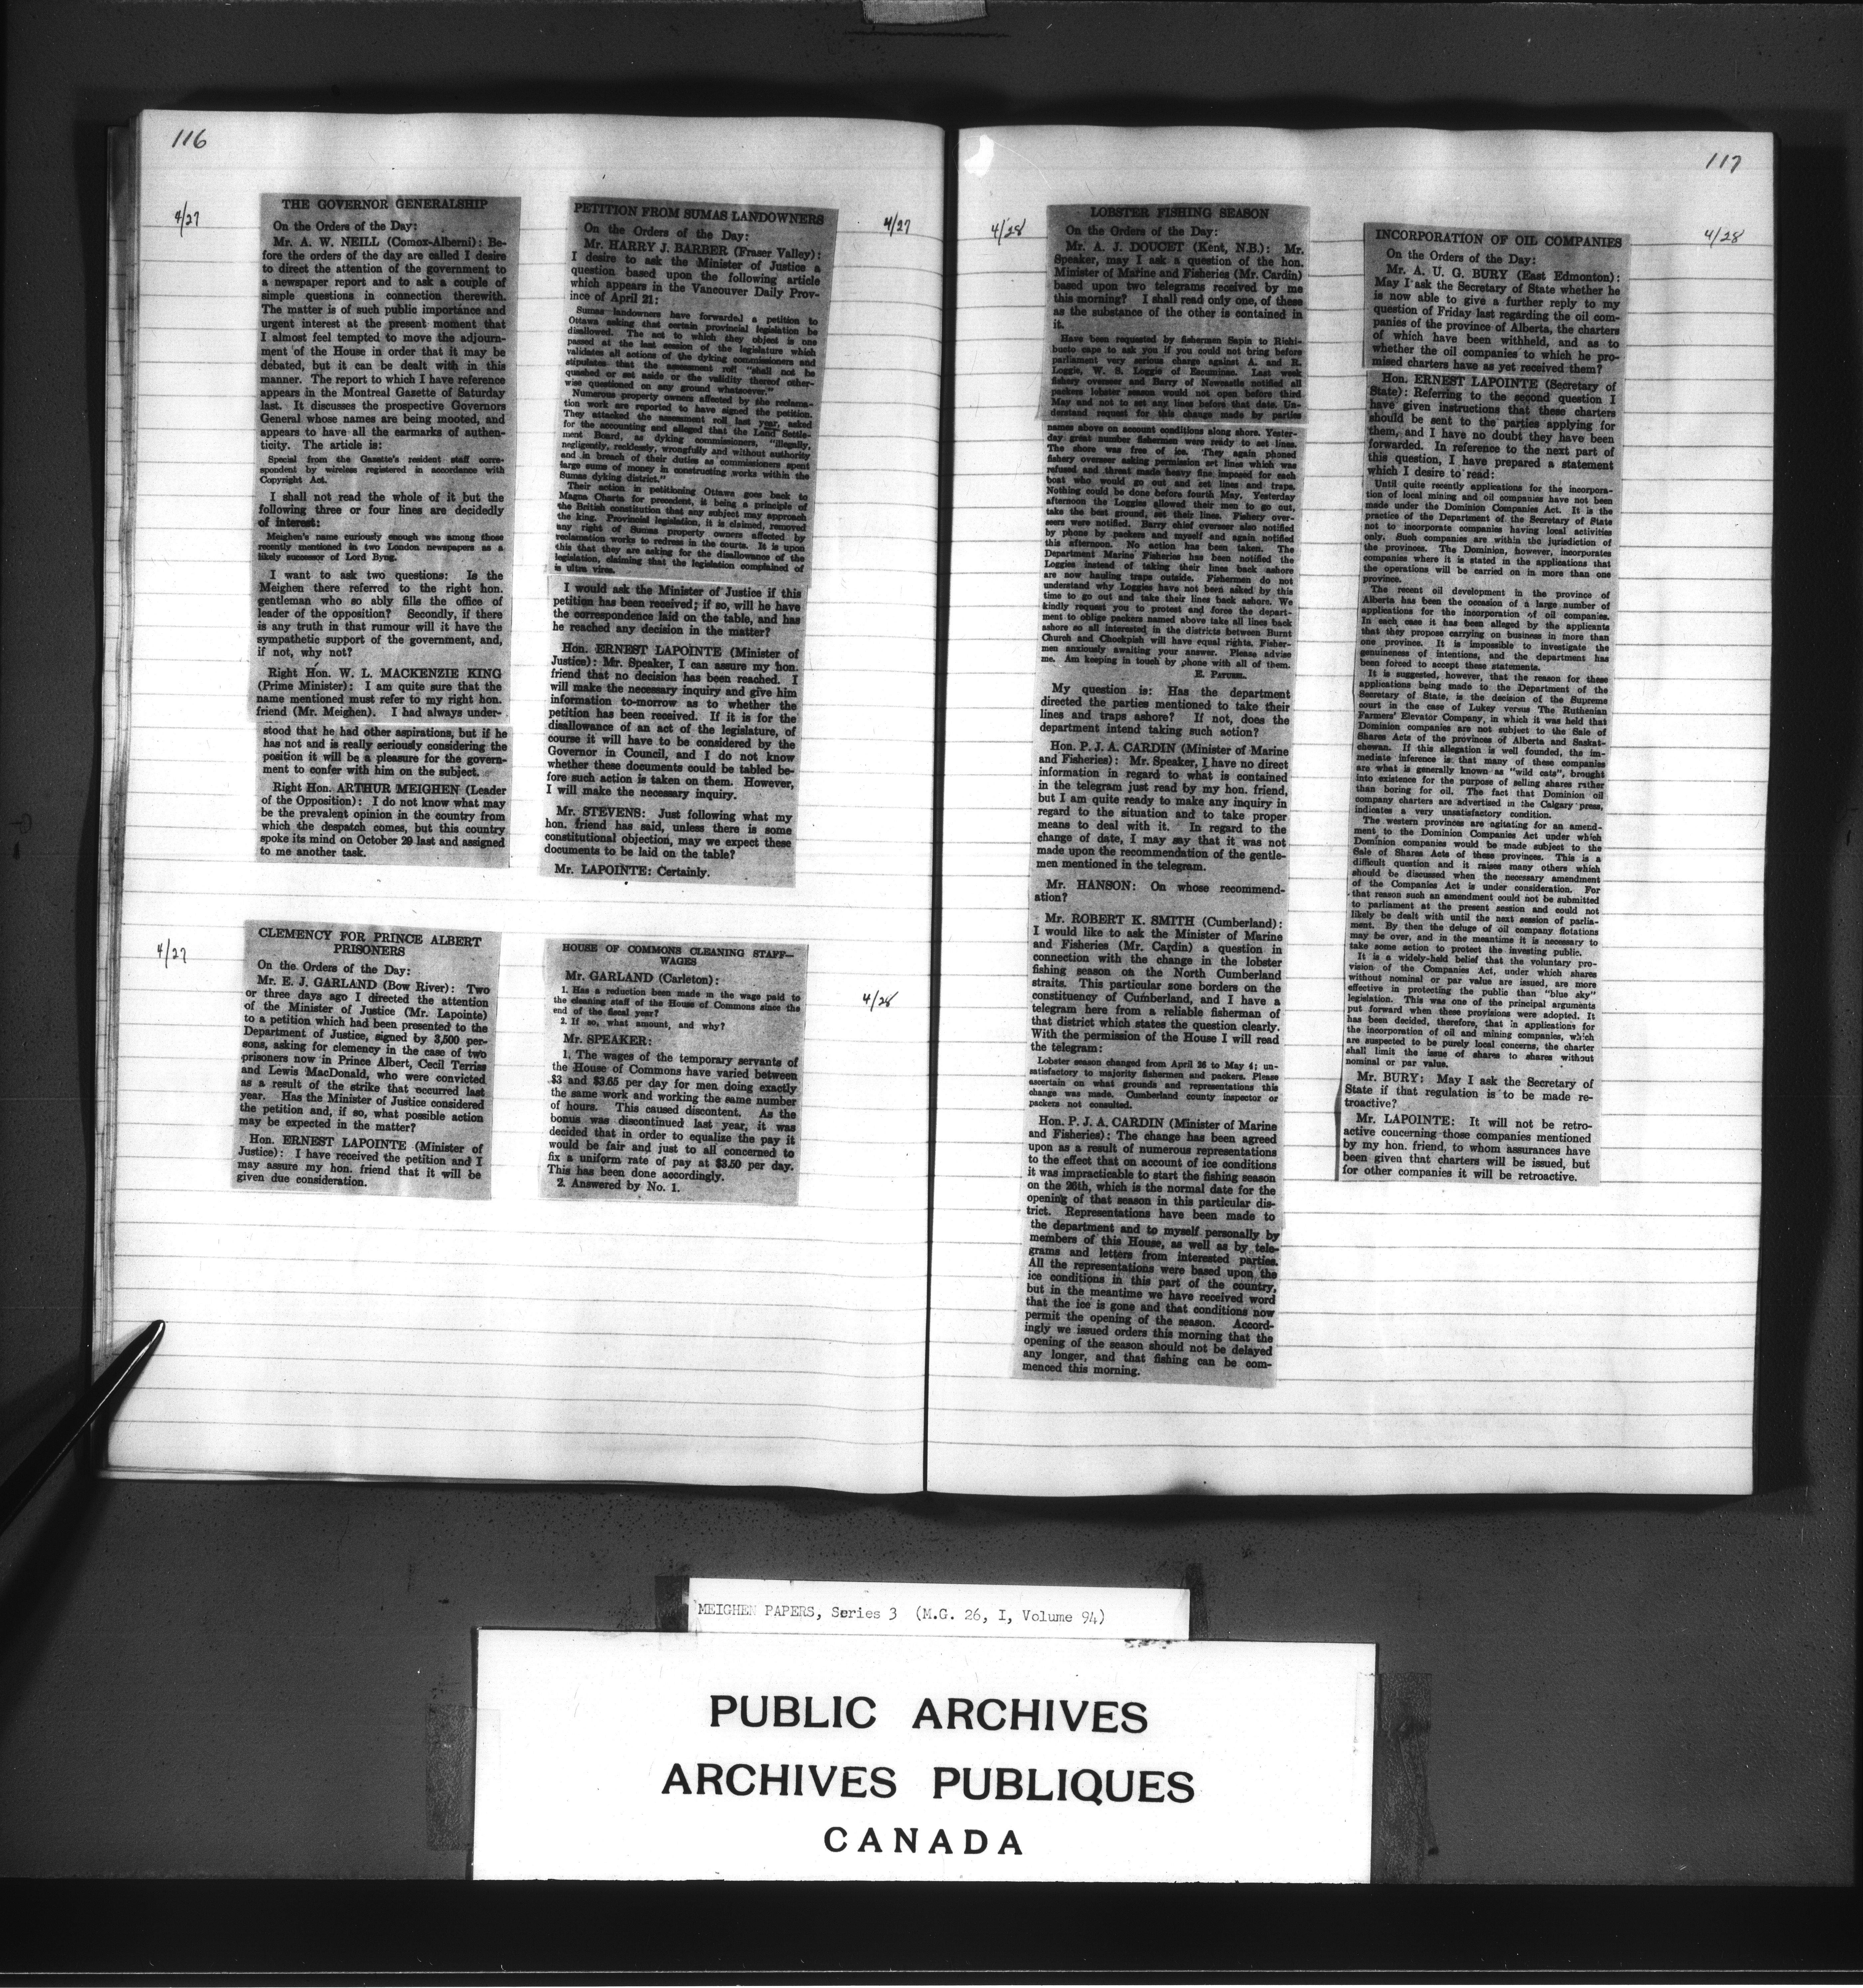 116
4/27
THE GOVERNOR GENERALSHIP
On the Orders of the Day:
Mr. A. W. NEILL (Comox-Alberni): Be-
fore the orders of the day are called I desire
to direct the attention of the government to
a newspaper report and to ask a couple of
simple questions in connection therewith.
The matter is of such public importance and
urgent interest at the present moment that
I almost feel tempted to move the adjourn-
ment of the House in order that it may be
debated, but it can be dealt with in this
manner. The report to which I have reference
appears in the Montreal Gazette of Saturday
last. It discusses the prospective Governors
General whose names are being mooted, and
appears to have all the earmarks of authen-
ticity. The article is:
Special from the Gazette's resident staff corre-
spondent by wireless registered in accordance with
Copyright Act.
I shall not read the whole of it but the
following three or four lines are decidedly
of interest:
Meighen's name curiously enough was among those
recently mentioned in two London newspapers as a
likely successor of Lord Byng.
I want to ask two questions: Is the
Meighen there referred to the right hon.
gentleman who so ably fills the office of
leader of the opposition? Secondly, if there
is any truth in that rumour will it have the
sympathetic support of the government, and,
if not, why not?
Right Hon. W. L. MACKENZIE KING
(Prime Minister): I am quite sure that the
name mentioned must refer to my right hon.
friend (Mr. Meighen). I had always under-
stood that he had other aspirations, but if he
has not and is really seriously considering the
position it will be a pleasure for the govern-
ment to confer with him on the subject.
Right Hon. ARTHUR MEIGHEN (Leader
of the Opposition): I do not know what may
be the prevalent opinion in the country from
which the despatch comes, but this country
spoke its mind on October 29 last and assigned
to me another task.
4/27
CLEMENCY FOR PRINCE ALBERT
PRISONERS
On the Orders of the Day:
Mr. E. J. GARLAND (Bow River): Two
or three days ago I directed the attention
of the Minister of Justice (Mr. Lapointe)
to a petition which had been presented to the
Department of Justice, signed by 3,500 per-
sons, asking for clemency in the case of two
prisoners now in Prince Albert, Cecil Terriss
and Lewis MacDonald, who were convicted
as a result of the strike that occurred last
year. Has the Minister of Justice considered
the petition and, if so, what possible action
may be expected in the matter?
Hon. ERNEST LAPOINTE (Minister of
Justice): I have received the petition and I
may assure my hon. friend that it will be
given due consideration.
4/27
PETITION FROM SUMAS LANDOWNERS
On the Orders of the Day:
Mr. HARRY J. BARBER (Fraser Valley):
I desire to ask the Minister of Justice a
question based upon the following article
which appears in the Vancouver Daily Prov-
ince of April 21:
Sumas landowners have forwarded a petition to
Ottawa asking that certain provincial legislation be
disallowed. The act to which they object is one
passed at the last session of the legislature which
validates all actions of the dyking commissioners and
stipulates that the assessment roll "shall not be
quashed or set aside or the validity thereof other-
wise questioned on any ground whatsoever."
Numerous property owners affected by the reclama-
tion work are reported to have signed the petition.
They attacked the assessment roll last year, asked
for the accounting and alleged that the Land Settle-
ment Board, as dyking commissioners, "illegally,
negligently, recklessly, wrongfully and without authority
and in breach of their duties as commissioners spent
large sums of money in constructing works within the
Sumas dyking district."
Their action in petitioning Ottawa goes back to
Magna Charta for precedent, it being a principle of
the British constitution that any subject may approach
the king. Provincial legislation, it is claimed, removed
any right of Sumas property owners affected by
reclamation works to redress in the courts. It is upon
this that they are asking for the disallowance of the
legislation, claiming that the legislation complained of
is ultra vires.
I would ask the Minister of Justice if this
petition has been received; if so, will he have
the correspondence laid on the table, and has
he reached any decision in the matter?
Hon. ERNEST LAPOINTE (Minister of
Justice): Mr. Speaker, I can assure my hon.
friend that no decision has been reached. I
will make the necessary inquiry and give him
information to-morrow as to whether the
petition has been received. If it is for the
disallowance of an act of the legislature, of
course it will have to be considered by the
Governor in Council, and I do not know
whether these documents could be tabled be-
fore such action is taken on them. However,
I will make the necessary inquiry.
Mr. STEVENS: Just following what my
hon. friend has said, unless there is some
constitutional objection, may we expect these
documents to be laid on the table?
Mr. LAPOINTE: Certainly.
4/28
HOUSE OF COMMONS CLEANING STAFF—
WAGES
Mr. GARLAND (Carleton):
1. Has a reduction been made in the wage paid to
the cleaning staff of the House of Commons since the
end of the fiscal year?
2. If so, what amount, and why?
Mr. SPEAKER:
1. The wages of the temporary servants of
the House of Commons have varied between
$3 and $3.65 per day for men doing exactly
the same work and working the same number
of hours. This caused discontent. As the
bonus was discontinued last year, it was
decided that in order to equalize the pay it
would be fair and just to all concerned to
fix a uniform rate of pay at $3.50 per day.
This has been done accordingly.
2. Answered by No. 1.
117
4/28
LOBSTER FISHING SEASON
On the Orders of the Day:
Mr. A. J. DOUCET (Kent, N.B.): Mr.
Speaker, may I ask a question of the hon.
Minister of Marine and Fisheries (Mr. Cardin)
based upon two telegrams received by me
this morning? I shall read only one, of these
as the substance of the other is contained in
it.
Have been requested by fishermen Sapin to Richi-
bucto cape to ask you if you could not bring before
parliament very serious charge against A. and R.
Loggie, W. S. Loggie of Escuminac. Last week
fishery overseer and Barry of Newcastle notified all
packers lobster season would not open before third
May and not to set any lines before that date. Un-
derstand request for this change made by parties
names above on account conditions along shore. Yester-
day great number fishermen were ready to set lines.
The shore was free of ice. They again phoned
fishery overseer asking permission set lines which was
refused and threat made heavy fine imposed for each
boat who would go out and set lines and traps.
Nothing could be done before fourth May. Yesterday
afternoon the Loggies allowed their men to go out,
take the best ground, set their lines. Fishery over-
seers were notified. Barry chief overseer also notified
by phone by packers and myself and again notified
this afternoon. No action has been taken. The
Department Marine Fisheries has been notified the
Loggies instead of taking their lines back ashore
are now hauling traps outside. Fishermen do not
understand why Loggies have not been asked by this
time to go out and take their lines back ashore. We
kindly request you to protest and force the depart-
ment to oblige packers named above take all lines back
ashore so all interested in the districts between Burnt
Church and Chockpish will have equal rights. Fisher-
men anxiously awaiting your answer. Please advise
me. Am keeping in touch by phone with all of them.
E. PATUREL.
My question is: Has the department
directed the parties mentioned to take their
lines and traps ashore? If not, does the
department intend taking such action?
Hon. P. J. A. CARDIN (Minister of Marine
and Fisheries): Mr. Speaker, I have no direct
information in regard to what is contained
in the telegram just read by my hon. friend,
but I am quite ready to make any inquiry in
regard to the situation and to take proper
means to deal with it. In regard to the
change of date, I may say that it was not
made upon the recommendation of the gentle-
men mentioned in the telegram.
Mr. HANSON: On whose recommend-
ation?
Mr. ROBERT K. SMITH (Cumberland):
I would like to ask the Minister of Marine
and Fisheries (Mr. Cardin) a question in
connection with the change in the lobster
fishing season on the North Cumberland
straits. This particular zone borders on the
constituency of Cumberland, and I have a
telegram here from a reliable fisherman of
that district which states the question clearly.
With the permission of the House I will read
the telegram:
Lobster season changed from April 26 to May 4; un-
satisfactory to majority fishermen and packers. Please
ascertain on what grounds and representations this
change was made. Cumberland county inspector or
packers not consulted.
Hon. P. J. A. CARDIN (Minister of Marine
and Fisheries): The change has been agreed
upon as a result of numerous representations
to the effect that on account of ice conditions
it was impracticable to start the fishing season
on the 26th, which is the normal date for the
opening of that season in this particular dis-
trict. Representations have been made to
the department and to myself personally by
members of this House, as well as by tele-
grams and letters from interested parties.
All the representations were based upon the
ice conditions in this part of the country,
but in the meantime we have received word
that the ice is gone and that conditions now
permit the opening of the season. Accord-
ingly we issued orders this morning that the
opening of the season should not be delayed
any longer, and that fishing can be com-
menced this morning.
4/28
INCORPORATION OF OIL COMPANIES
On the Orders of the Day:
Mr. A. U. G. BURY (East Edmonton):
May I ask the Secretary of State whether he
is now able to give a further reply to my
question of Friday last regarding the oil com-
panies of the province of Alberta, the charters
of which have been withheld, and as to
whether the oil companies to which he pro-
mised charters have as yet received them?
Hon. ERNEST LAPOINTE (Secretary of
State): Referring to the second question I
have given instructions that these charters
should be sent to the parties applying for
them, and I have no doubt they have been
forwarded. In reference to the next part of
this question, I have prepared a statement
which I desire to read:
Until quite recently applications for the incorpora-
tion of local mining and oil companies have not been
made under the Dominion Companies Act. It is the
practice of the Department of the Secretary of State
not to incorporate companies having local activities
only. Such companies are within the jurisdiction of
the provinces. The Dominion, however, incorporates
companies where it is stated in the applications that
the operations will be carried on in more than one
province.
The recent oil development in the province of
Alberta has been the occasion of a large number of
applications for the incorporation of oil companies.
In each case it has been alleged by the applicants
that they propose carrying on business in more than
one province. It is impossible to investigate the
genuineness of intentions, and the department has
been forced to accept these statements.
It is suggested, however, that the reason for these
applications being made to the Department of the
Secretary of State, is the decision of the Supreme
court in the case of Lukey versus The Ruthenian
Farmers' Elevator Company, in which it was held that
Dominion companies are not subject to the Sale of
Shares Acts of the provinces of Alberta and Saskat-
chewan. If this allegation is well founded, the im-
mediate inference is that many of these companies
are what is generally known as "wild cats", brought
into existence for the purpose of selling shares rather
than boring for oil. The fact that Dominion oil
company charters are advertised in the Calgary press,
indicates a very unsatisfactory condition.
The western provinces are agitating for an amend-
ment to the Dominion Companies Act under which
Dominion companies would be made subject to the
Sale of Shares Acts of these provinces. This is a
difficult question and it raises many others which
should be discussed when the necessary amendment
of the Companies Act is under consideration. For
that reason such an amendment could not be submitted
to parliament at the present session and could not
likely be dealt with until the next session of parlia-
ment. By then the deluge of oil company flotations
may be over, and in the meantime it is necessary to
take some action to protect the investing public.
It is a widely-held belief that the voluntary pro-
vision of the Companies Act, under which shares
without nominal or par value are issued, are more
effective in protecting the public than "blue sky"
legislation. This was one of the principal arguments
put forward when these provisions were adopted. It
has been decided, therefore, that in applications for
the incorporation of oil and mining companies, which
are suspected to be purely local concerns, the charter
shall limit the issue of shares to shares without
nominal or par value.
Mr. BURY: May I ask the Secretary of
State if that regulation is to be made re-
troactive?
Mr. LAPOINTE: It will not be retro-
active concerning those companies mentioned
by my hon. friend, to whom assurances have
been given that charters will be issued, but
for other companies it will be retroactive.
MEIGHEN PAPERS, Series 3 (M.G. 26, I, Volume 94)
PUBLIC ARCHIVES
ARCHIVES PUBLIQUES
CANADA